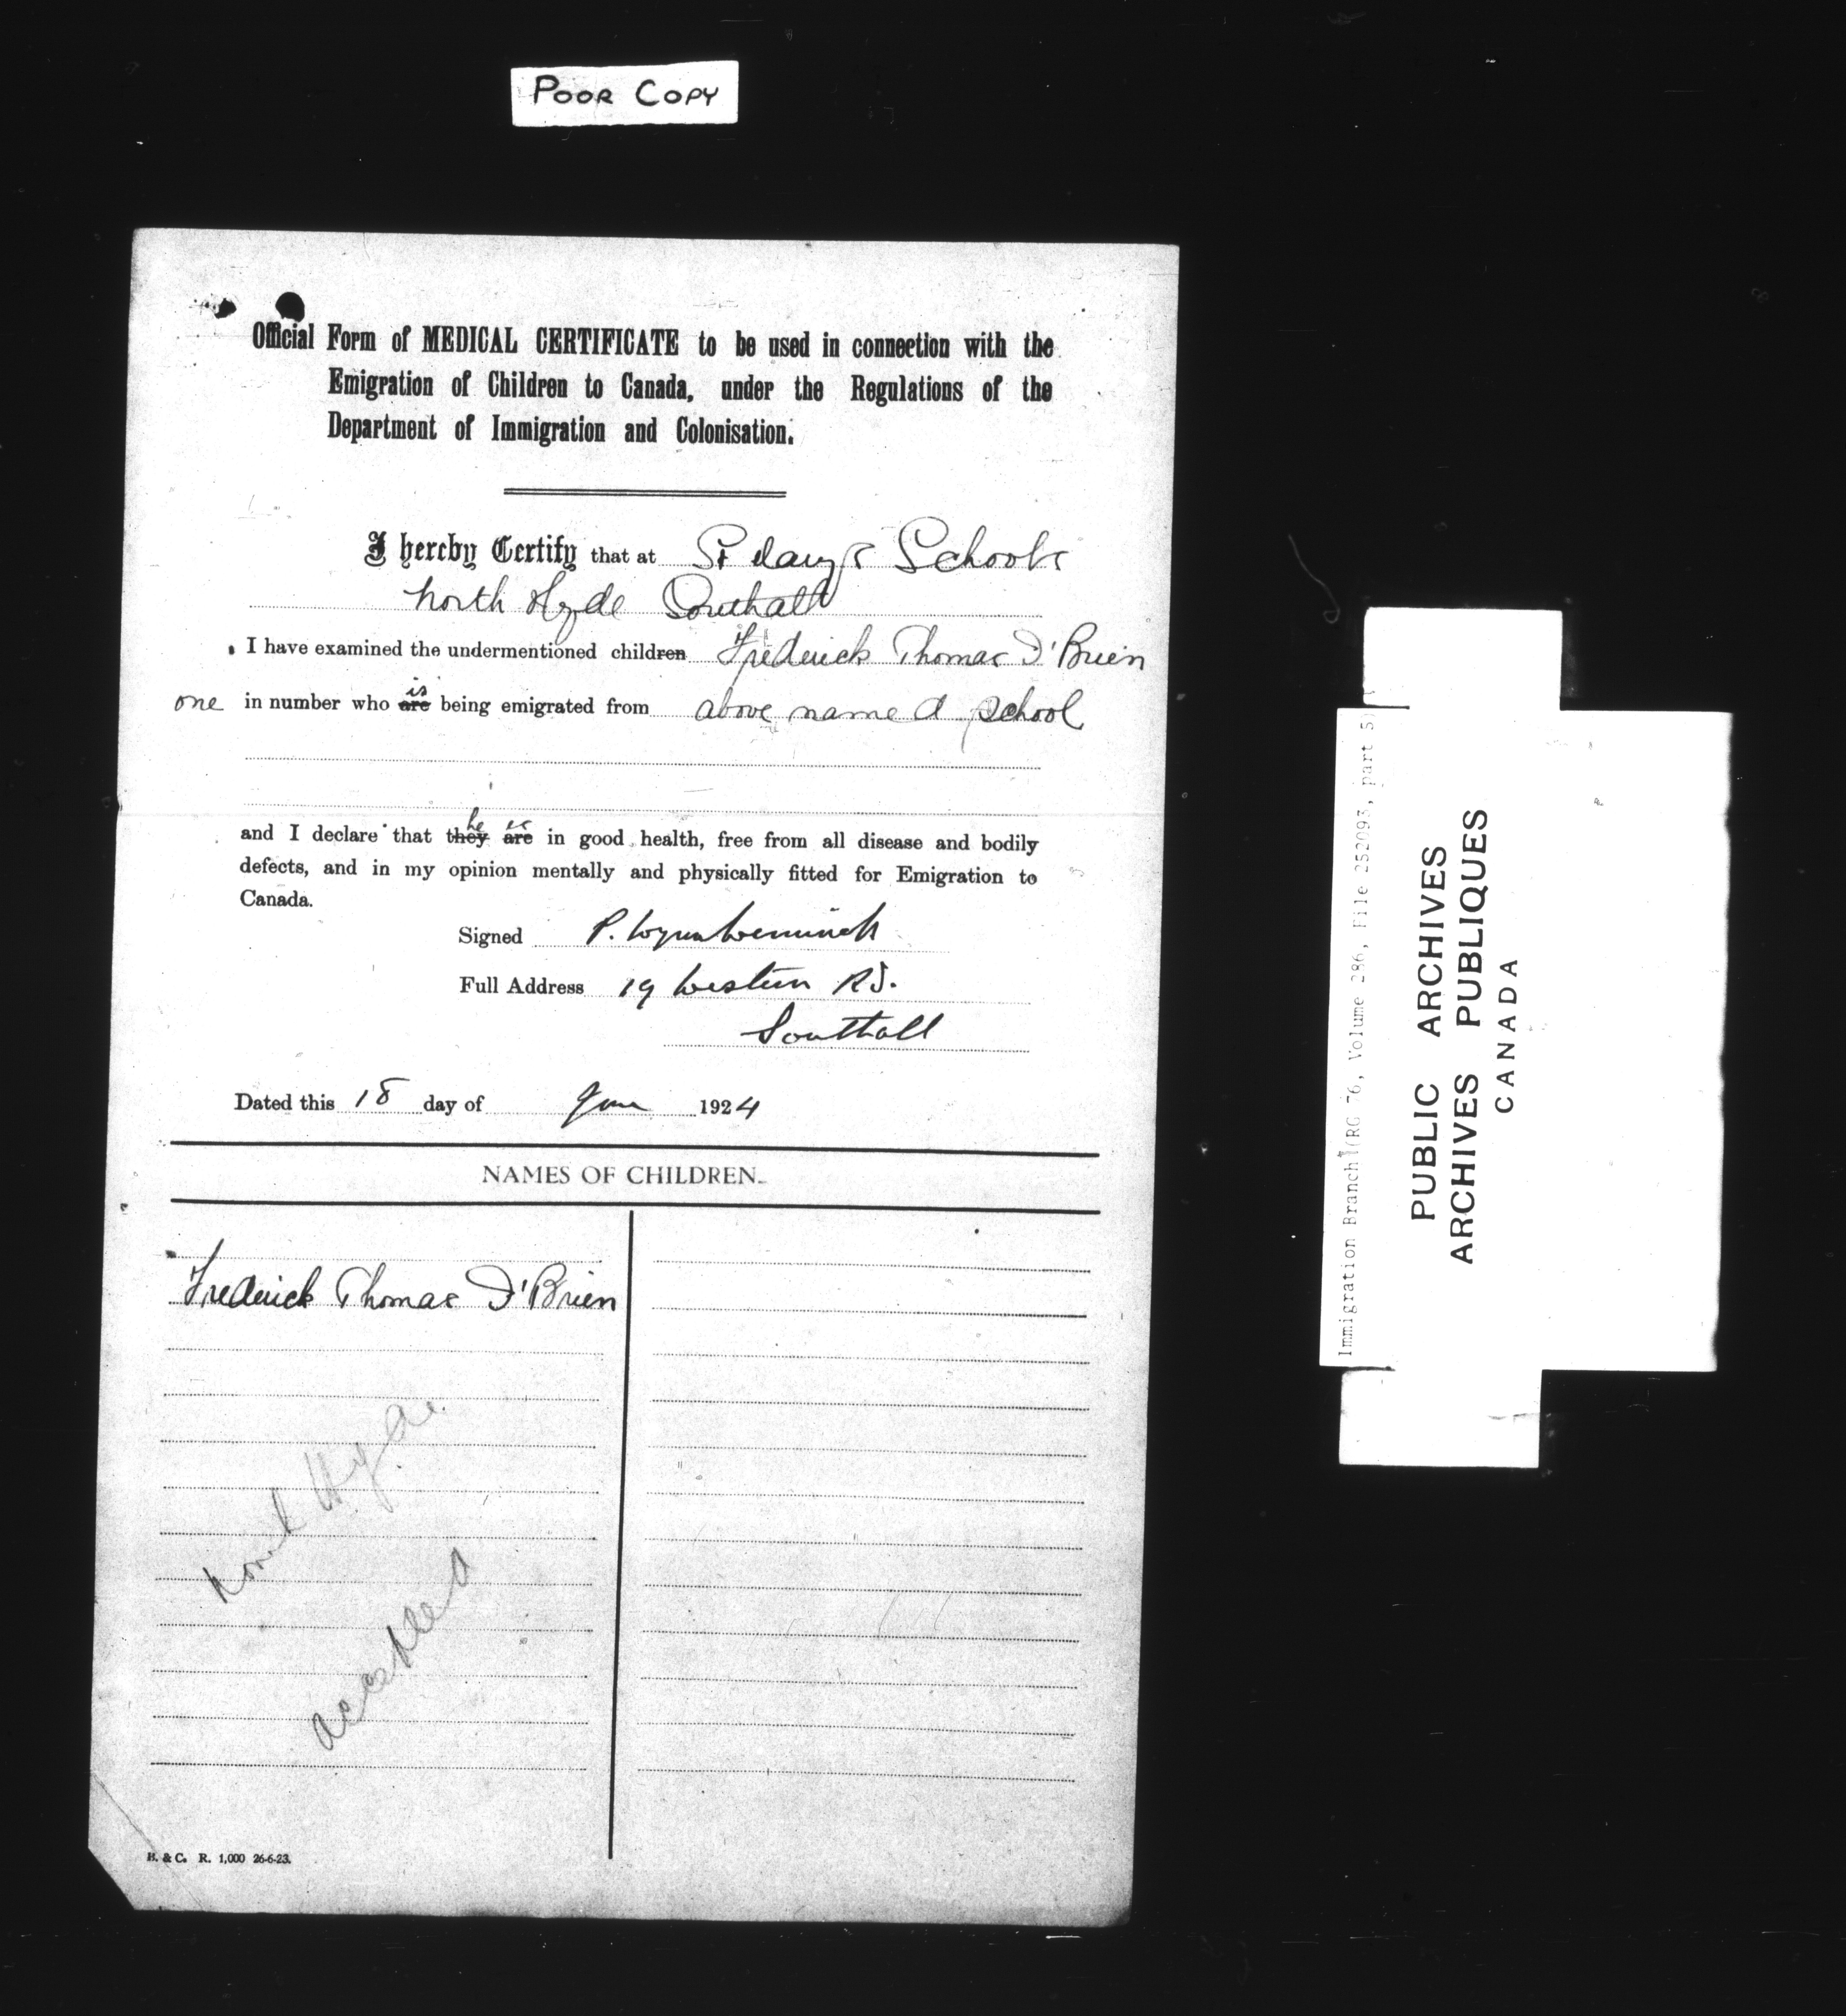 POOR COPY
Official Form of MEDICAL CERTIFICATE to be used in connection with the
Emigration of Children to Canada, under the Regulations of the
Department of Immigration and Colonisation.
I hereby Certify that at St Mary's Schools
North Hyde Southall
I have examined the undermentioned children Frederick Thomas O'Brien
one in number who are is being emigrated from above named school
and I declare that they he are is in good health, free from all disease and bodily
defects, and in my opinion mentally and physically fitted for Emigration to
Canada.
Signed P.
Full Address 19 Western Rd.
Southall
Dated this 18 day of June 1924
NAMES OF CHILDREN.
Frederick Thomas O'Brien
North Hyde
accepted
H. & C. R. 1,000 26-6-23.
Immigration Branch (RG 76, Volume 286, File 252093, part 5)
PUBLIC ARCHIVES
ARCHIVES PUBLIQUES
CANADA